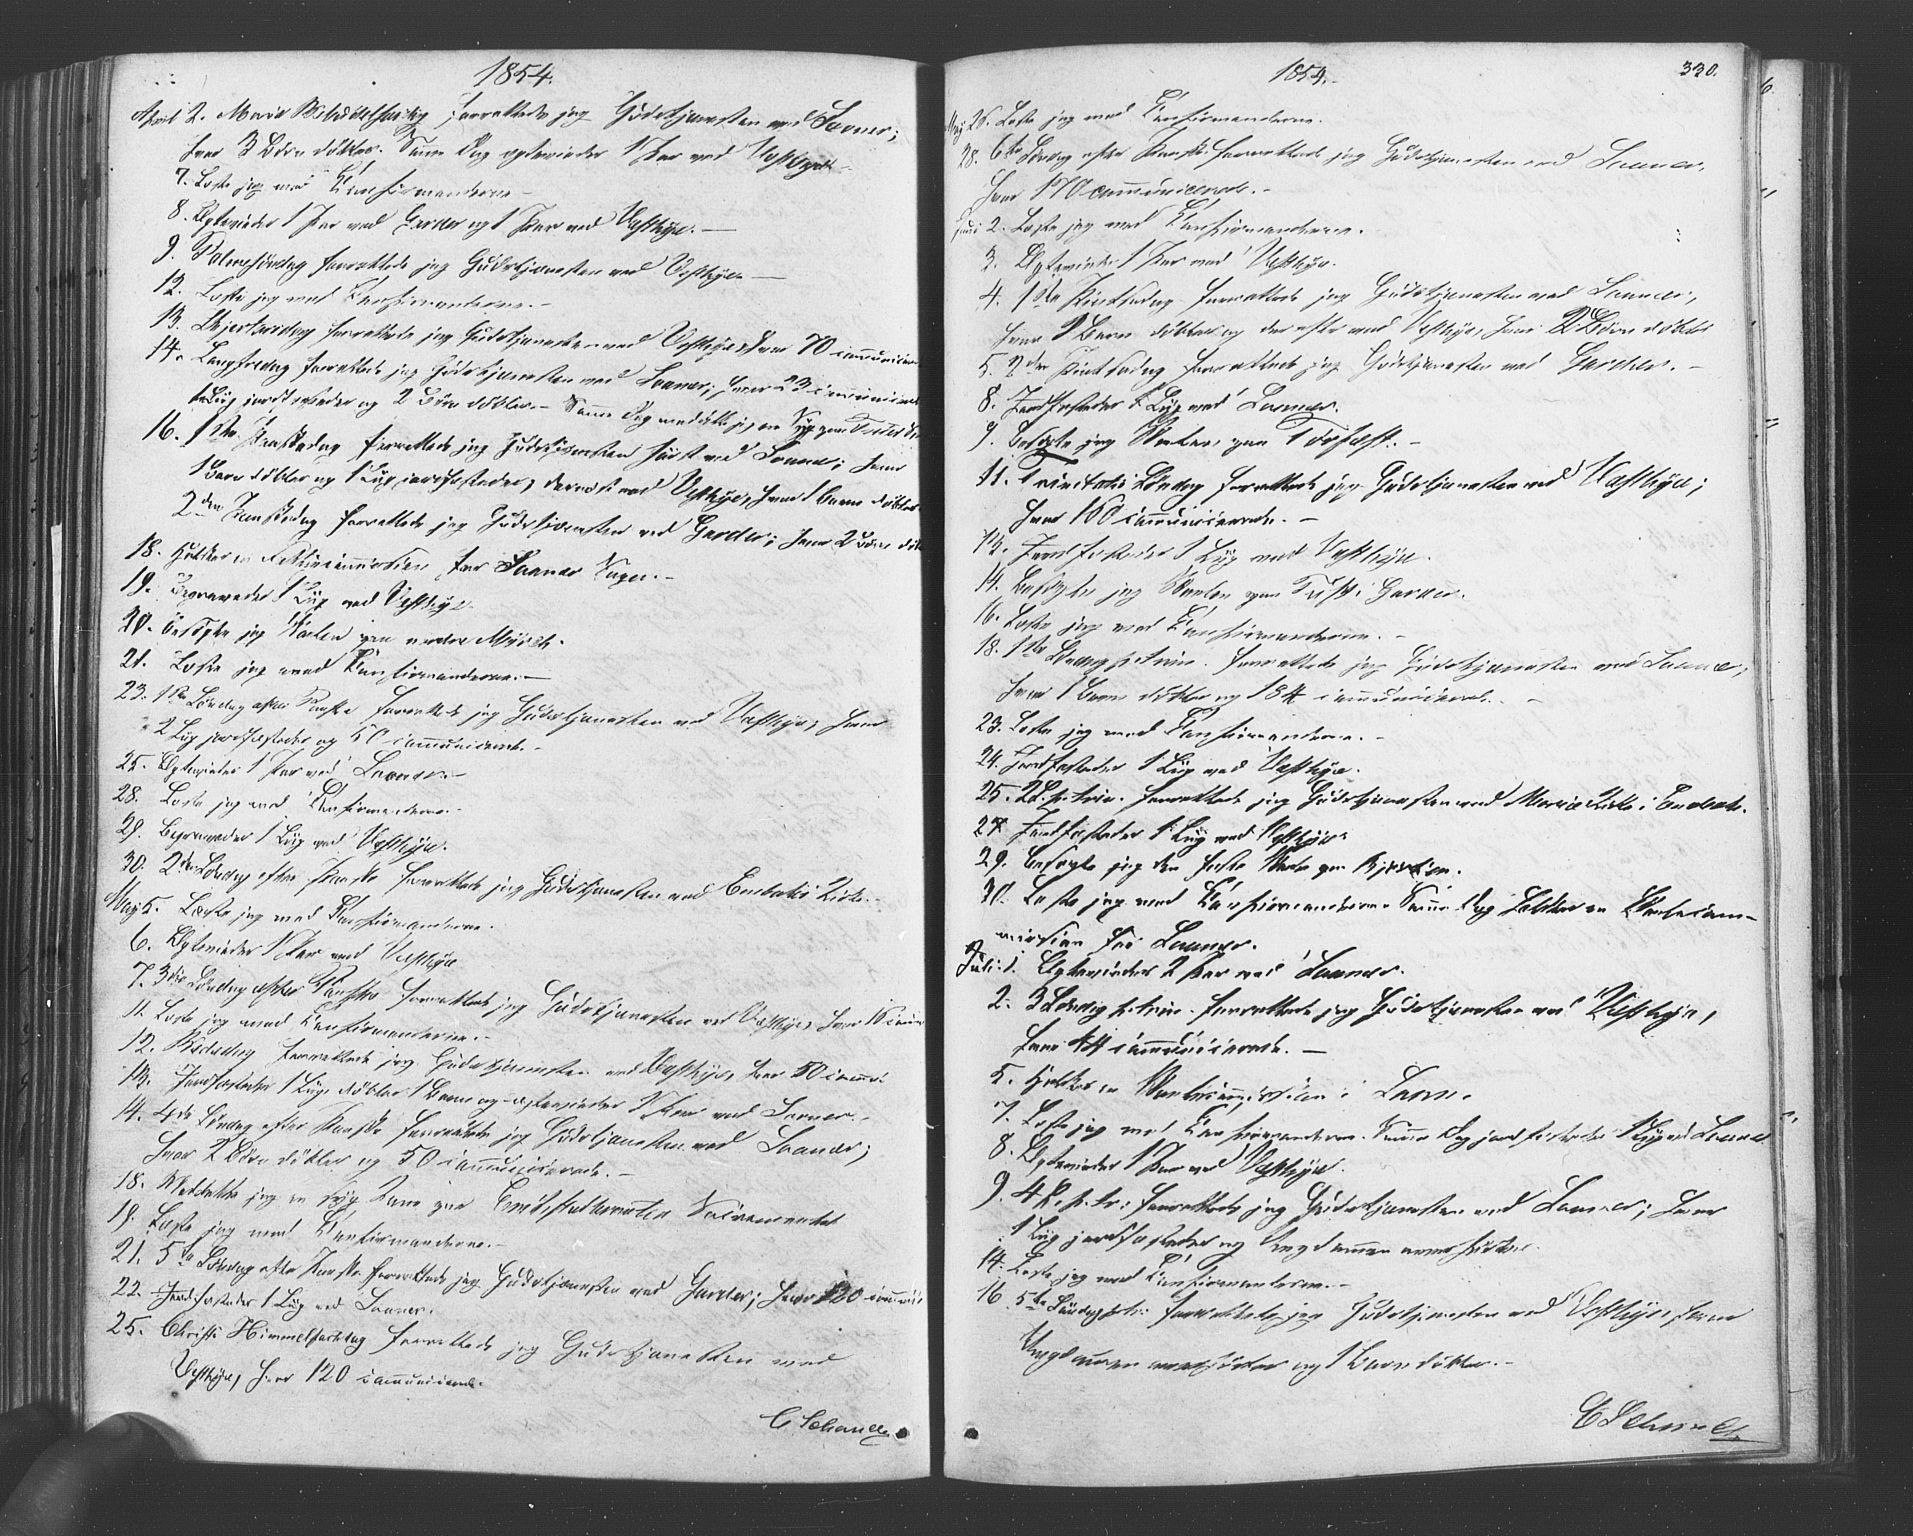 1854.
April 2. Mariæ Bebudelsesdag forrettede jeg Gudstjenesten ved Sooner;
hvor 3 Børn døbtes. Samme Dag egteviedes 1 Par ved Vestbye.
7. Læste jeg med Confirmanderne.
8. Egteviedes 1 Par ved Garder og 1 Par ved Vestbye.
9. Palmesøndag forrettede jeg Gudstjenesten ved Vestbye.
12. Læste jeg med Confirmanderne.
13. Skjertorsdag forrettede jeg Gudstjenesten ved Vestbye, hvor 70 communicer
14. Langfredag forrettede jeg Gudstjenesten ved Sooner; hvor 23 communicerede
1 Liig jordfæstedes og 2 Børn døbtes. Samme Dag meddelte jeg en Syg paa
16. 1ste Paaskedag forrettede jeg Gudstjenesten først ved Sooner; hvor
1 Barn døbtes og 1 Liig jordfæstedes, dernæst ved Vestbye, hvor 1 Barn døbtes
2den Paaskedag forrettede jeg Gudstjenesten ved Garder; hvor 2 Børn døb
18. Holdtes en Fattigcommission for Sooner Sogn.
19. Begravedes 1 Liig ved Vestbye.
20. Besøgte jeg Skolen paa nedre Mørch.
21. Læste jeg med Confirmanderne.
23. 1ste Søndag efter Paaske forrettede jeg Gudstjenesten ved Vestbye, hvor
2 Liig jordfæstedes og 50 communicerede.
25. Egteviedes 1 Par ved Sooner.
28. Læste jeg med Confirmanderne.
29. Begravedes 1 Liig ved Vestbye.
30. 2den Søndag efter Paaske forrettede jeg Gudstjenesten ved Enebaks Kirke.
May 5. Læste jeg med Confirmanderne.
6. Egteviedes 1 Par ved Vestbye
7. 3die Søndag efter Paaske forrettede jeg Gudstjenesten ved Vestbye, hvor
11. Læste jeg med Confirmanderne.
12. Bededag forrettede jeg Gudstjenesten ved Vestbye, hvor 50 comm:
13. Jordfæstedes 1 Liig, døbtes 1 Barn og egteviedes 1 Par ved Sooner.
14. 4de Søndag efter Paaske forrettede jeg Gudstjenesten ved Sooner;
hvor 2 Børn døbtes og 50 communicerede.
18. Meddelte jeg en syg Kone paa Sacramentet
19. Læste jeg med Confirmanderne.
21. 5te Søndag efter Paaske forrettede jeg Gudstjenesten ved Garder; hvor 120 communi:
22. Jordfæstedes 1 Liig ved Sooner.
25. Christi Himmelfartsdag forrettede jeg Gudstjenesten ved
Vestbye, hvor 120 communicerede.
C Schanche
1854. 330.
May 26. Læste jeg med Confirmanderne.
28. 6te Søndag efter Paaske forrettede jeg Gudstjenesten ved Sooner,
hvor 170 communicerede.
Juni 2. Læste jeg med Confirmanderne.
3. Egteviedes 1 Par ved Vestbye.
4. 1ste Pintsedag forrettede jeg Gudstjenesten ved Sooner,
hvor 1 Barn døbtes og derefter ved Vestbye, hvor 2 Børn døbtes
5. 2den Pintsedag forrettede jeg Gudstjenesten ved Garder.
8. Jordfæstedes 1 Liig ved Sooner.
9. Besøgte jeg Skolen paa
11. Trinitatis Søndag forrettede jeg Gudstjenesten ved Vestbye;
hvor 100 communicerede.
13. Jordfæstedes 1 Liig ved Vestbye.
14. Besøgte jeg Skolen paa i Garder.
16. Læste jeg med Confirmanderne.
18. 1ste Søndag p. trin. forrettede jeg Gudstjenesten ved Sooner,
hvor 1 Barn døbtes og 134 communicerede.
23. Læste jeg med Confirmanderne.
24. Jordfæstedes 1 Liig ved Vestbye.
25. 2 S. p. trin. forrettede jeg Gudstjenesten ved Mariæ Kirke i Enebak.
27. Jordfæstedes 1 Liig ved Vestbye.
29. Besøgte jeg den faste Skole paa
30. Læste jeg med Confirmanderne. Samme Dag holdtes en Skolecom-
mission for Sooner.
Juli 1. Egteviedes 2 Par ved Sooner.
2. 3 Søndag p. trin. forrettede jeg Gudstjenesten ved Vestbye,
hvor 44 communicerede.
5. Holdtes en Skolecommission i Soon.
7. Læste jeg med Confirmanderne. Samme Dag jordfæstedes 1 Liig ved Sooner
8. Egteviedes 1 Par ved Vestbye.
9. 4 S. p. tr. forrettede jeg Gudstjenesten ved Sooner; hvor
1 Liig jordfæstedes og Ungdommen overhørtes.
14. Læste jeg med Confirmanderne.
16. 5te Søndag p. tr. forrettede jeg Gudstjenesten ved Vestbye, hvor
Ungdommen overhørtes og 1 Barn døbtes.
C Schanche